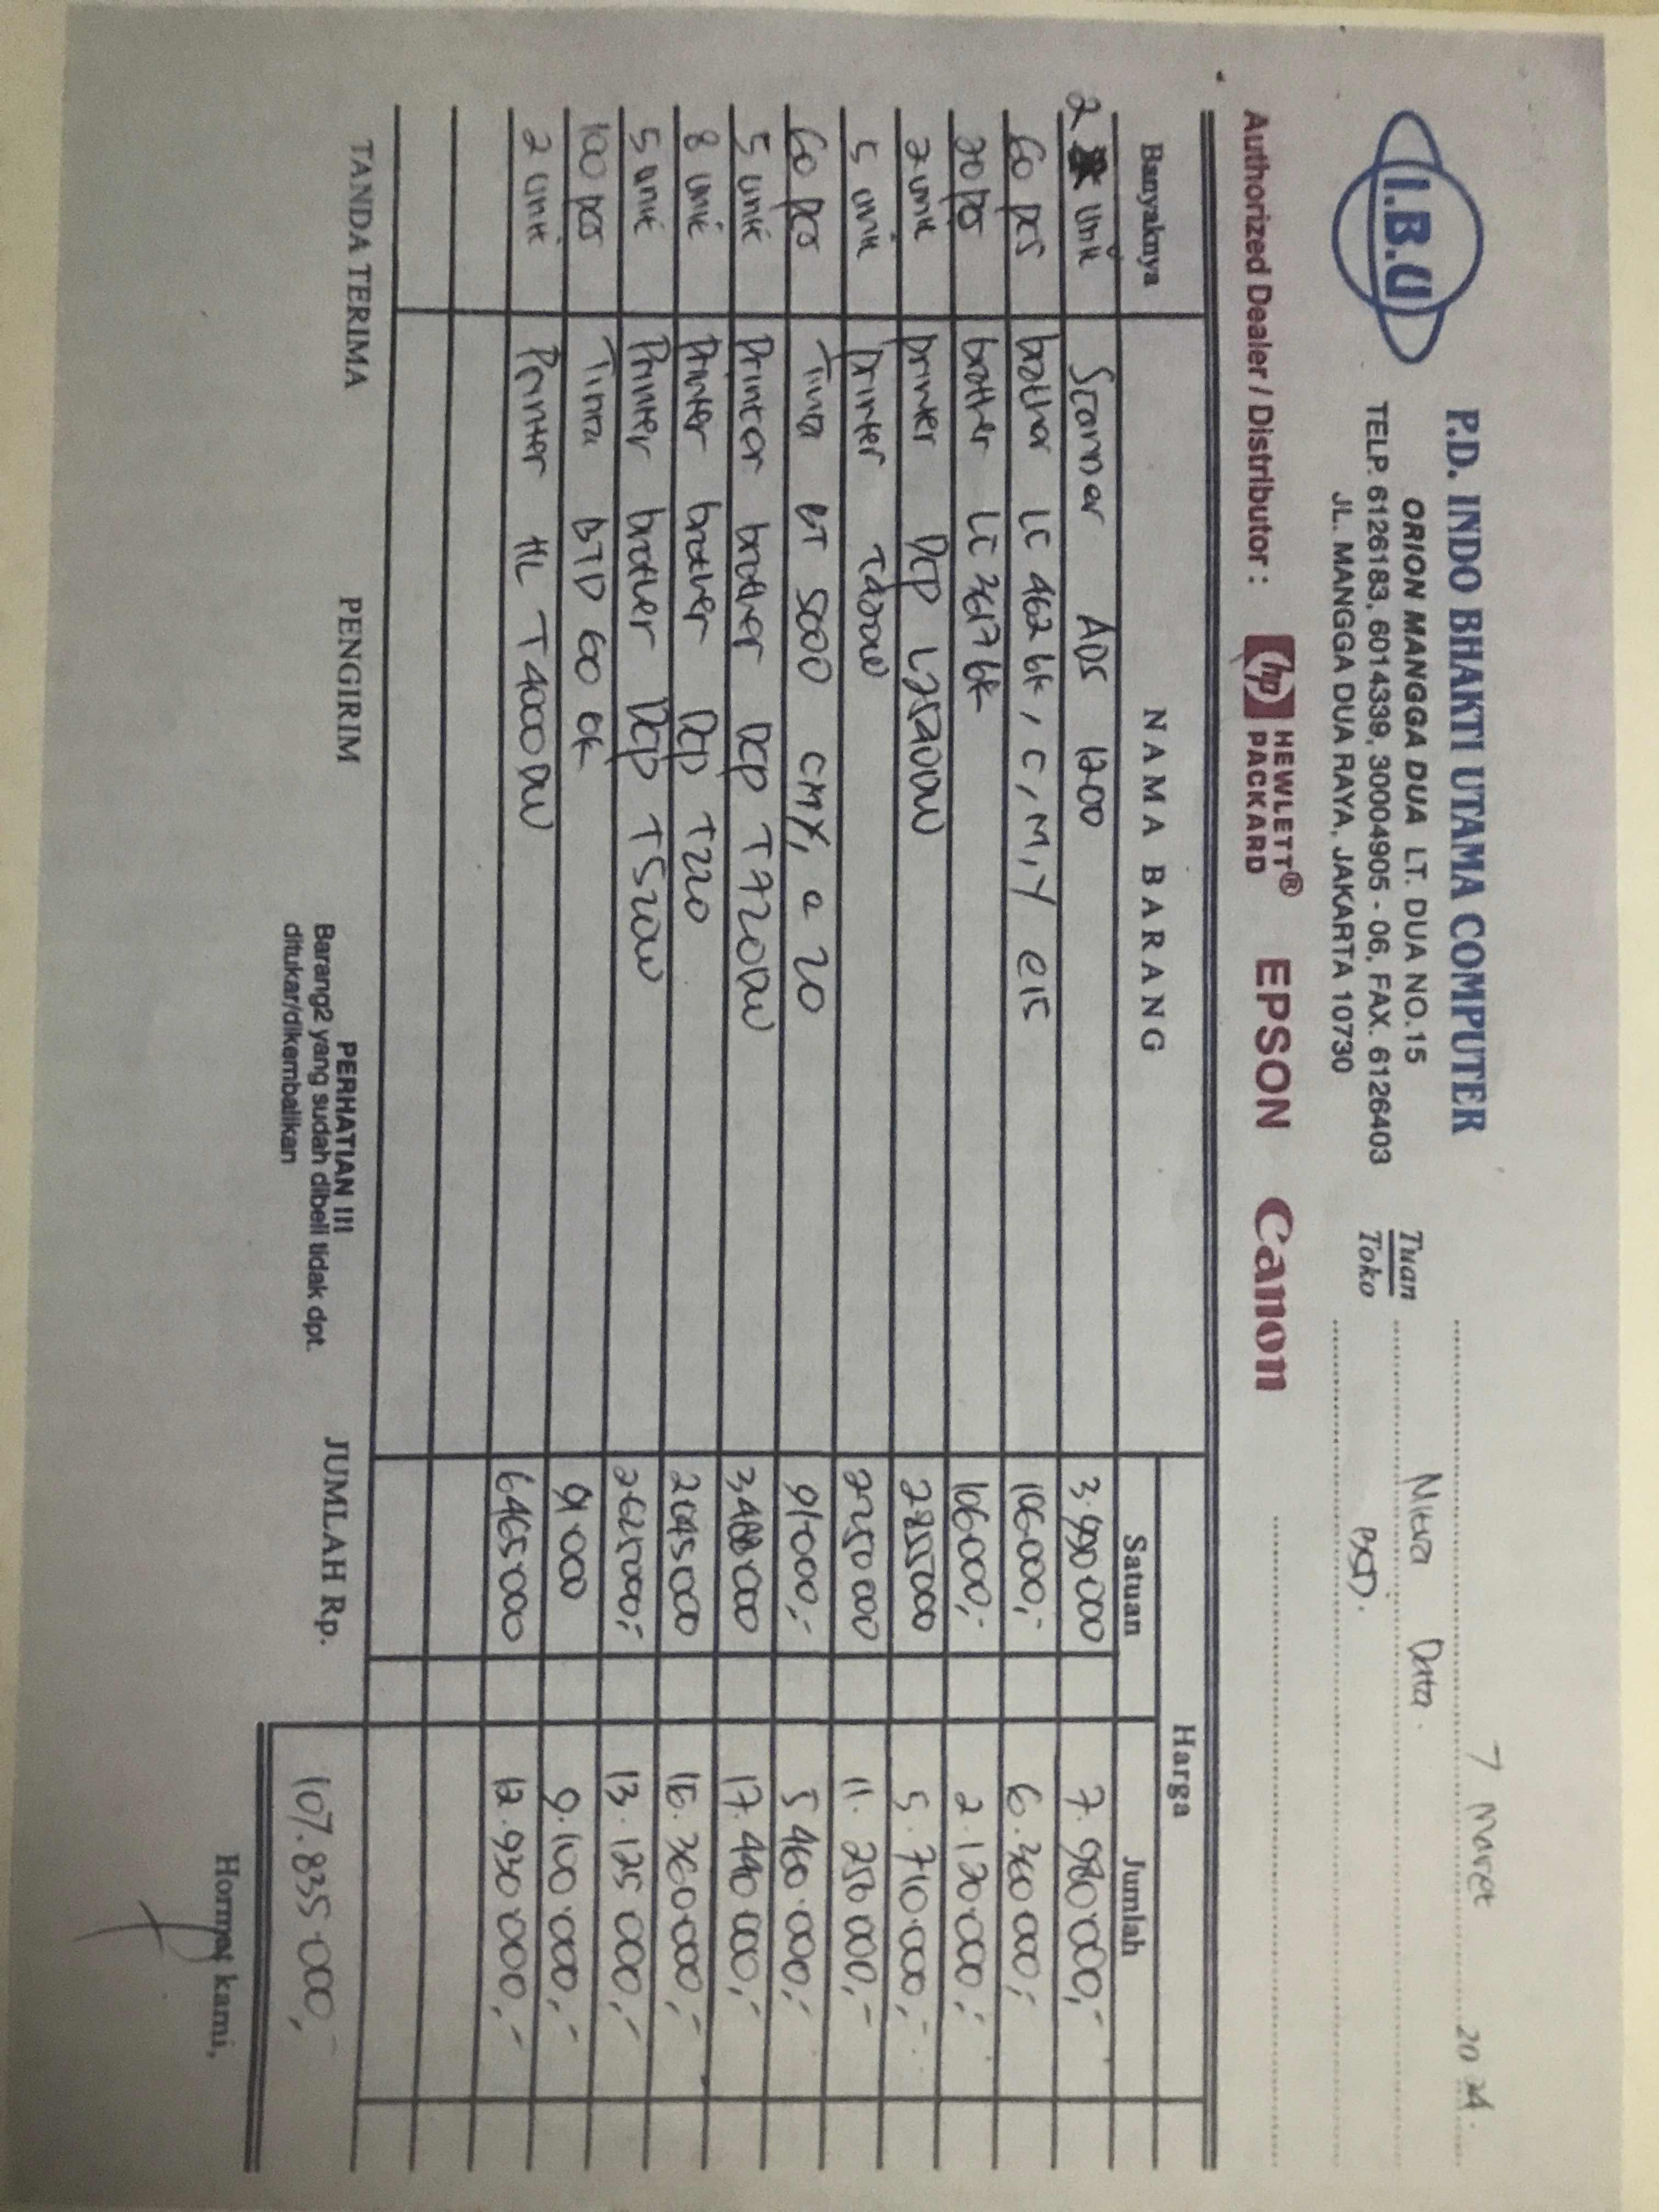 I.B.U
P.D. INDO BHAKTI UTAMA COMPUTER
ORION MANGGA DUA LT. DUA NO.15
TELP. 6126183, 6014339, 30004905 - 06, FAX. 6126403
JL. MANGGA DUA RAYA, JAKARTA 10730
7 Maret 2024.
Tuan
Toko
Mitra Data.
Authorized Dealer / Distributor : hp HEWLETT® PACKARD EPSON Canon
Banyaknya NAMA BARANG Harga
Satuan Jumlah
2 unit Scanner ADS 1200 3.990.000 7.980.000,-
60 pcs brother LC 462 bk, C, M, Y @15 106.000,- 6.360.000,-
20 pcs brother LC 3617 bk 106.000,- 2.120.000,-
2 unit printer DCP 2855000 5.710.000,-
5 unit printer 2250000 11.250.000,-
60 pcs Tinta BT 5000 CMY, @ 20 91.000,- 5.460.000,-
5 unit Printer brother DCP T720DW 3.488.000 17.440.000,-
8 unit Printer brother DCP T220 2045000 16.360.000,-
5 unit Printer brother DCP T520W 2625000,- 13.125.000,-
100 pcs Tinta BTD 60 bk 91.000 9.100.000,-
2 unit Printer HL T4000DW 6465000 12.930.000,-
TANDA TERIMA PENGIRIM PERHATIAN !!!
Barang2 yang sudah dibeli tidak dpt.
ditukar/dikembalikan
JUMLAH Rp. 107.835.000,-
Hormat kami,